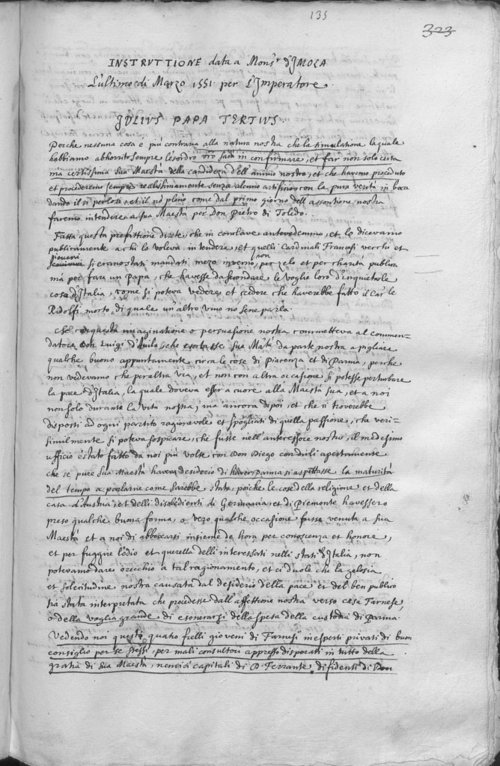 135
323
INSTRUTTIONE data a Mons.r d'IMOLA
L'ultimo di Marzo 1551 per L'Imperatore
IULIUS PAPA TERTIUS
Perche nessuna cosa e più contraria alla natura nostra che la simulatione la quale
habbiamo abhorrito sempre in confirmare, et far non solo certa
ma certissima sua Maestà della candidezza dell'animo nostro, et che havemo proceduto
et procederemo sempre realissimamente senza alcuno artificio con la pura verità in bocca
dando il si per lo si et il nò come dal primo giorno dell'assontione nostra
facemo intendere a sua Maestà per Don Pietro di Toledo.
Fatta questa prefattione direte, che in conclave antevedemmo, et lo dicevamo
publicamente a chi lo voleva intendere, et quelli Cardinali Francesi vecchi et
giovani si erano stati mandati per zelo et per charità publica
mà per fare un Papa, che havesse da secondare le voglie loro d'inquietare le
cose d'Italia, come si poteva vedere et credere che haverebbe fatto il Car.le
Ridolfi morto, di quale un altro vivo non se ne parla
Che questa imaginatione o persuasione nostra commetteva al Commen-
datore Don Luigi d'Avila, che exortasse Sua M.tà da parte nostra a pigliare
qualche buono appuntamento circa le cose di Piacenza et di Parma, perche
non vedevamo che per altra via, et non con altra occasione si potesse perturbare
la pace d'Italia, la quale doveva esser a cuore alla Maestà sua, et a noi
non solo durante la vita nostra, ma ancora dipoi, et che ci trovarebbe
disposti ad ogni partito ragionevole et spogliati di quella passione, che veri-
similmente si poteva sospicare, che fusse nell'antecessore nostro, il medesimo
ufficio è stato fatto da noi più volte con Don Diego con dirli apertamente
che se pure sua Maestà haveva desiderio di haver Parma si aspettasse la maturità
del tempo a pigliarne come sarebbe stata poiche le cose della religione et della
casa d'Austria, et delli disobedienti di Germania, et di Piemonte havessero
preso qualche buona forma, o vero qualche occasione fusse venuta a sua
Maestà et a noi di abboccarsi insieme da hora per conoscenza et honore,
et per fuggire l'odio et querelle delli interessati nelli stati d'Italia, non
potevamo dare orecchio a tal ragionamento, et ci duole che la gelosia
et solecitudine nostra causata dal desiderio della pace et del ben publico
sia stata interpretata che procedesse dall'affettione nostra verso casa Farnese,
o della voglia grande di esonerarsi della spesa della custodia di Parma
Vedendo noi questi quatro fratelli gioveni di Farnesi inesperti privati di buon
consiglio per se stessi, per mali consultori appresso disperati in tutto della
gratia di Sua Maestà, nemici capitali di D. Ferrante, diffidenti di Don